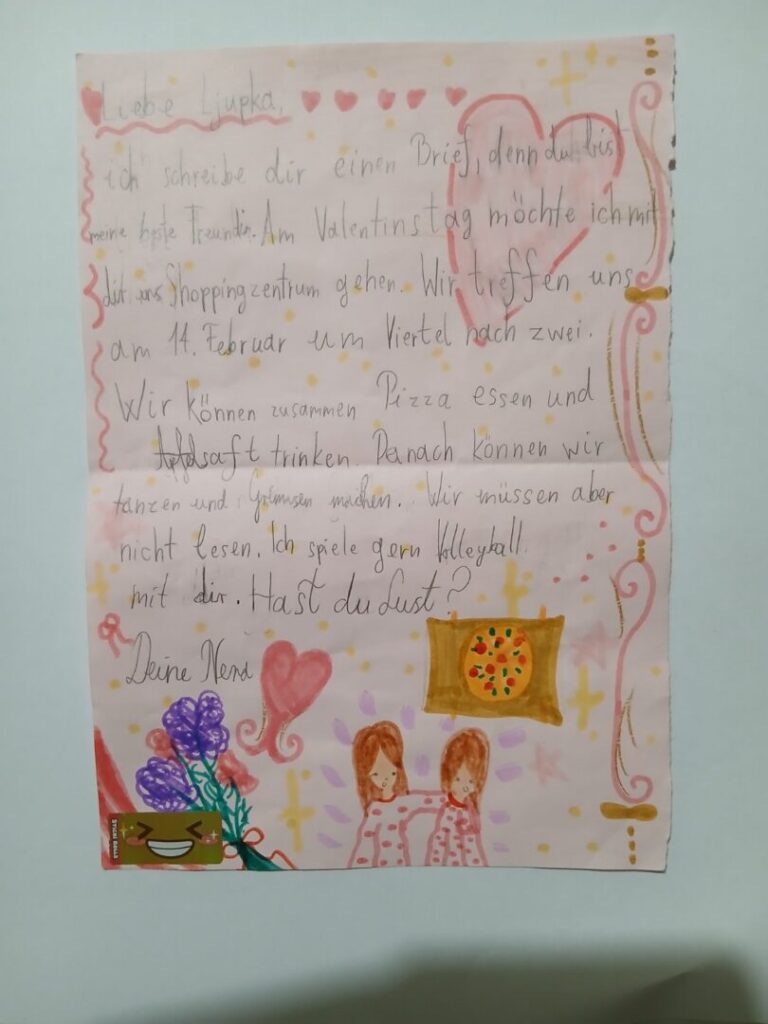 Liebe Ljupka,
ich schreibe dir einen Brief, denn du bist
meine beste Freundin. Am Valentinstag möchte ich mit
dir ins Shoppingzentrum gehen. Wir treffen uns
am 14. Februar um Viertel nach zwei.
Wir können zusammen Pizza essen und
Apfelsaft trinken. Danach können wir
tanzen und Grimasen machen. Wir müssen aber
nicht lesen. Ich spiele gern Volleyball
mit dir. Hast du Lust?
Deine Nena